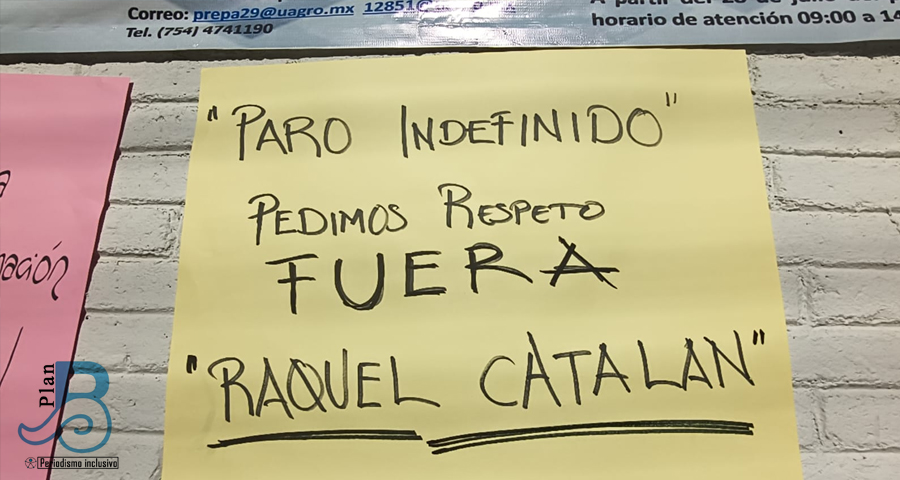 Correo: prepa29@uagro.mx 12851@
Tel. (754) 4741190
horario de atención 09:00 a 14
"PARO INDEFINIDO"
PEDIMOS RESPETO
FUERA
"RAQUEL CATALAN"
Plan
B
Periodismo inclusivo